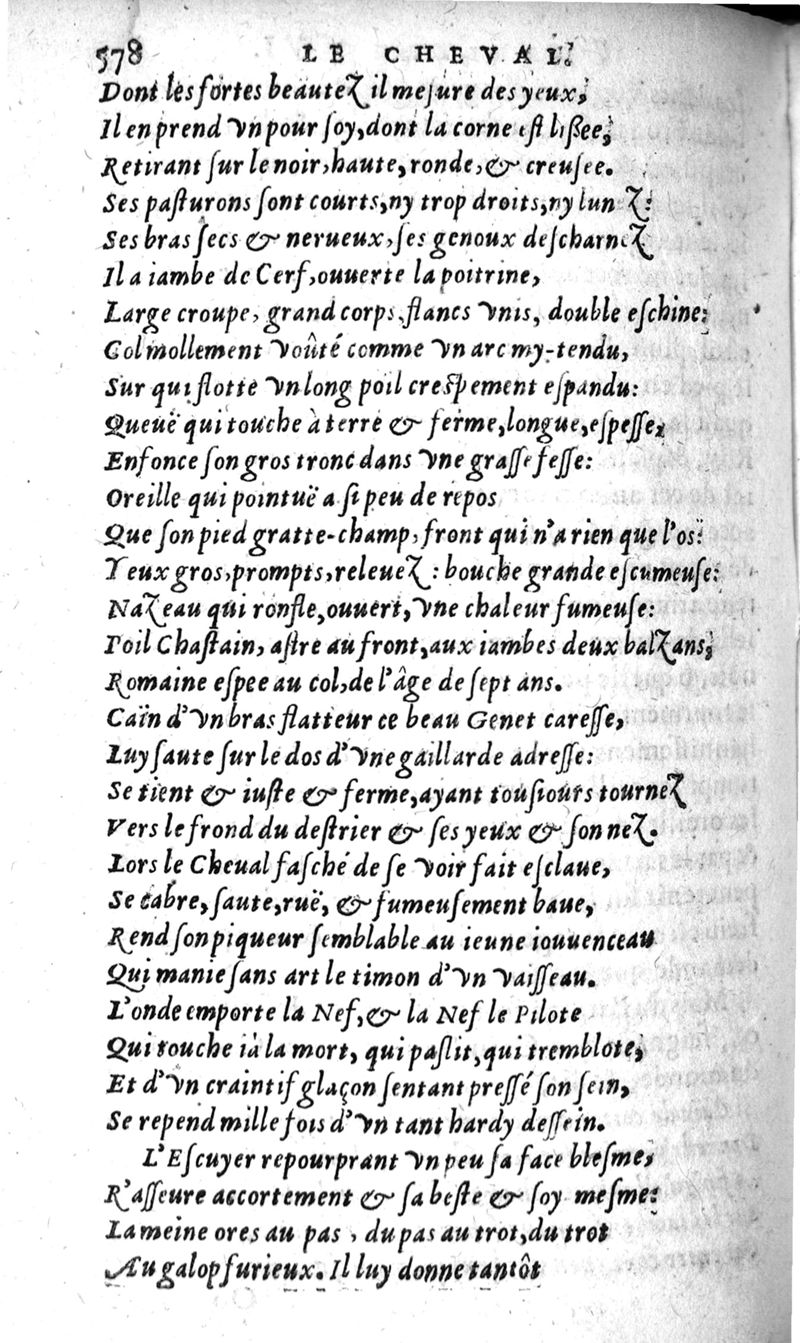 578 LE CHEVAL.
Dont les fortes beautez il meſure des yeux,
Il en prend vn pour ſoy, dont la corne eſt lißee,
Retirant ſur le noir, haute, ronde, & creuſee.
Ses paſturons ſont courts, ny trop droits, ny lun z:
Ses bras ſecs & nerueux, ſes genoux deſcharnez
Il a iambe de Cerf, ouuerte la poitrine,
Large croupe, grand corps, flancs vnis, double eſchine:
Col mollement voûté comme vn arc my-tendu,
Sur qui flotte vn long poil creſpement eſpandu:
Queuë qui touche à terre & ferme, longue, eſpeſſe,
Enfonce ſon gros tronc dans vne graſſe feſſe:
Oreille qui pointuë a ſi peu de repos
Que ſon pied gratte-champ, front qui n'a rien que l'os:
Yeux gros, prompts, releuez: bouche grande eſcumeuſe:
Nazeau qui ronfle, ouuert, vne chaleur fumeuſe:
Poil Chaſtain, aſtre au front, aux iambes deux balzans,
Romaine eſpee au col, de l'âge de ſept ans.
Caïn d'vn bras flatteur ce beau Genet careſſe,
Luy ſaute ſur le dos d'vne gaillarde adreſſe:
Se tient & iuſte & ferme, ayant touſiours tournez
Vers le frond du deſtrier & ſes yeux & ſon nez.
Lors le Cheual faſché de ſe voir fait eſclaue,
Se cabre, ſaute, ruë, & fumeuſement baue,
Rend ſon piqueur ſemblable au ieune iouuenceau
Qui manie ſans art le timon d'vn vaiſſeau.
L'onde emporte la Nef, & la Nef le Pilote
Qui touche ià la mort, qui paſlit, qui tremblote,
Et d'vn craintif glaçon ſentant preſſé ſon ſein,
Se repend mille fois d'vn tant hardy deſſein.
L'Eſcuyer repourprant vn peu ſa face bleſme,
R'aſſeure accortement & ſa beſte & ſoy meſme:
La meine ores au pas, du pas au trot, du trot
Au galop furieux. Il luy donne tantôt